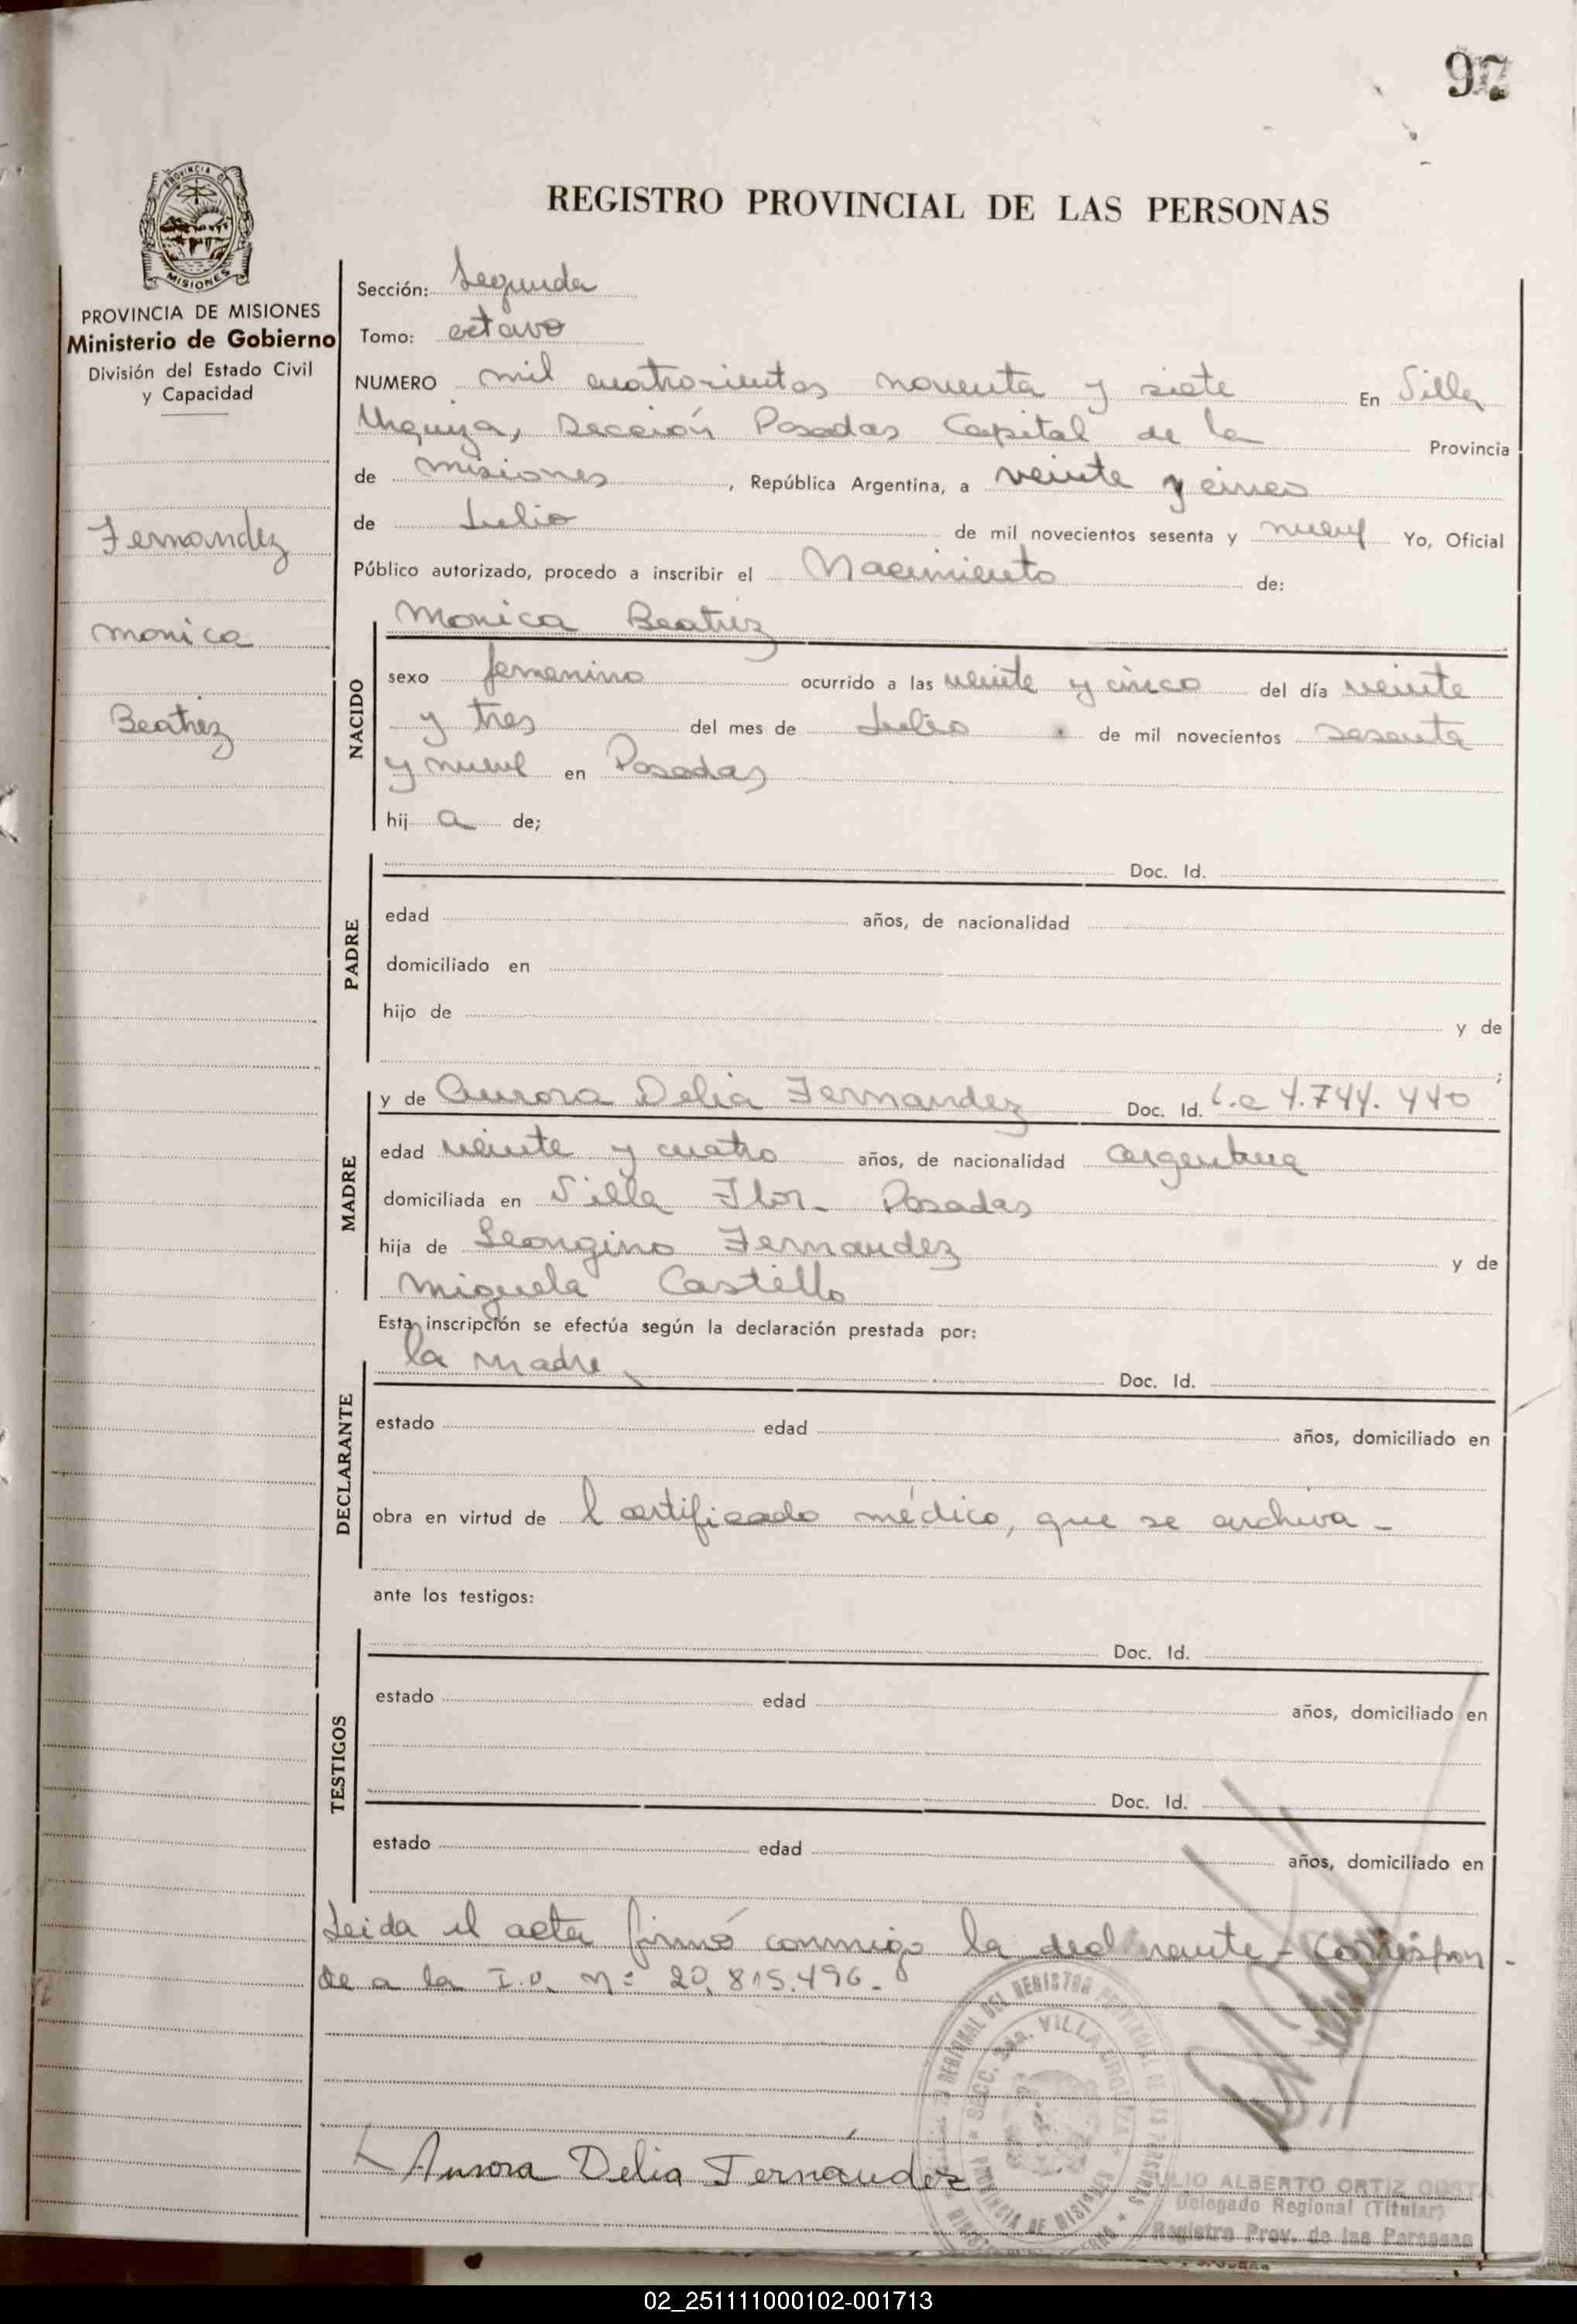 97
PROVINCIA DE
MISIONES
REGISTRO PROVINCIAL DE LAS PERSONAS
PROVINCIA DE MISIONES
Ministerio de Gobierno
División del Estado Civil
y Capacidad
Fernandez
Monica
Beatriz
Sección: Segunda
Tomo: octavo
NUMERO mil cuatrocientos noventa y siete En Villa
Urquiza, Sección Posadas Capital de la Provincia
de Misiones, República Argentina, a veinte y cinco
de Julio de mil novecientos sesenta y nueve Yo, Oficial
Público autorizado, procedo a inscribir el Nacimiento de:
NACIDO
Monica Beatriz
sexo femenino ocurrido a las veinte y cinco del día veinte
y tres del mes de Julio de mil novecientos sesenta
y nueve en Posadas
hij a de;
PADRE
Doc. Id.
edad años, de nacionalidad
domiciliado en
hijo de y de
;
MADRE
y de Aurora Delia Fernandez Doc. Id. L.C 4.744.440
edad veinte y cuatro años, de nacionalidad argentina
domiciliada en Villa Flor - Posadas
hija de Leongino Fernandez y de
Miguela Castillo
Esta inscripción se efectúa según la declaración prestada por:
DECLARANTE
la madre Doc. Id.
estado edad años, domiciliado en
obra en virtud de l certificado médico, que se archiva -
ante los testigos:
TESTIGOS
Doc. Id.
estado edad años, domiciliado en
Doc. Id.
estado edad años, domiciliado en
Leida el acta firmó conmigo la declarante - Correspon -
de a la I.D. Nº 20.815.496.-
SECC. 2da. VILLA URQUIZA
PROVINCIA DE MISIONES
Aurora Delia Fernández
JULIO ALBERTO ORTIZ COSTA
Delegado Regional (Titular)
Registro Prov. de las Personas
02_251111000102-001713